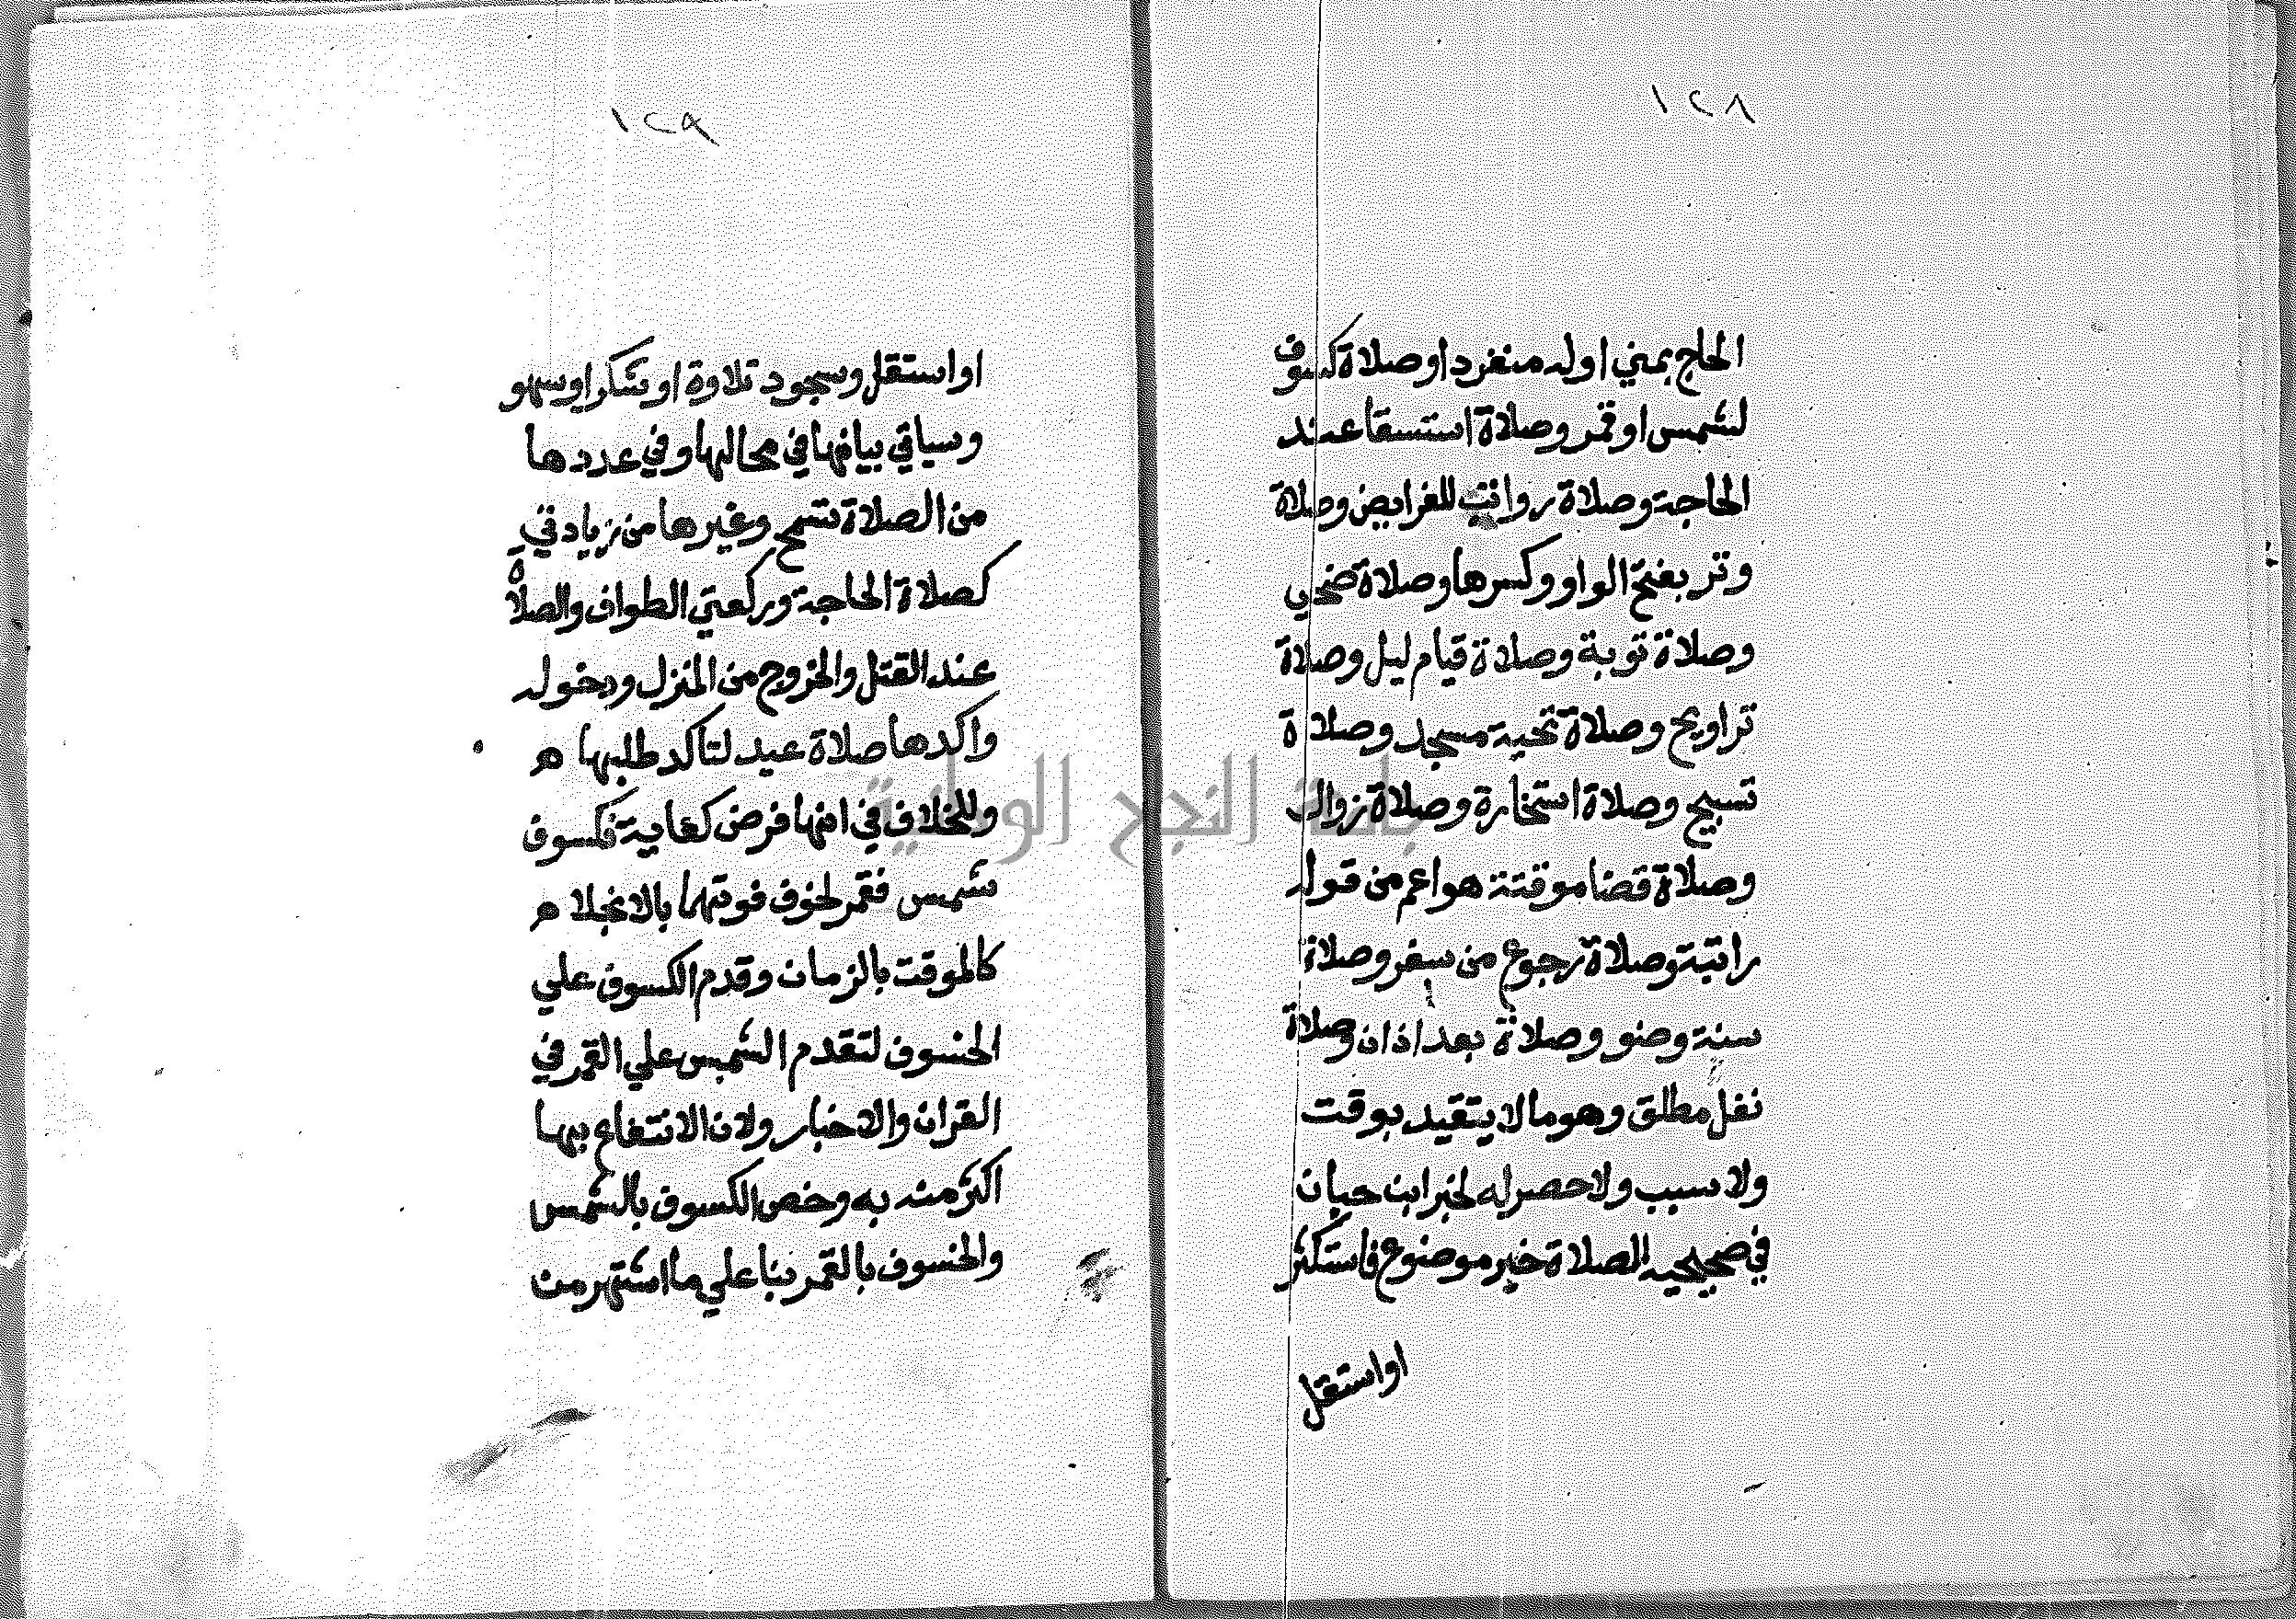 ١٢٨
الحاج بمني اوله منفرد اوصلاة كسوف
لشمس اوقمر وصلاة استسقا عند
الحاجة وصلاة رواتب للفرايض وصلاة
وتر بفتح الواو وكسرها وصلاة ضحي
وصلاة توبة وصلاة قيام ليل وصلاة
تراويح وصلاة تحية مسجد وصلاة
تسبيح وصلاة استخارة وصلاة زوال
وصلاة قضا موقتة هو اعم من قوله
راتبة وصلاة رجوع من سفر وصلاة
سنة وضو وصلاة بعد اذان وصلاة
نفل مطلق وهو ما لا يتقيد بوقت
ولا سبب ولا حصر له لخبر ابن حبان
في صحيحه الصلاة خير موضوع فاستكثر
او استقل
١٢٩
او استقل وسجود تلاوة او شكر او سهو
وسياتي بيانها في محالها وفي عددها
من الصلاة تسمح وغيرها من زيادتي
كصلاة الحاجة وركعتي الطواف والصلاة
عند القتل والخروج من المنزل ودخوله
واكدها صلاة عيد لتاكد طلبها ه
وللخلاف في انها فرض كفاية فكسوف
شمس فقمر لخوف فوتهما بالانجلا ه
كالموقت بالزمان وقدم الكسوف علي
الخسوف لتقدم الشمس علي القمر في
القران والاخبار ولان الانتفاع بها
اكثر منه به وخص الكسوف بالشمس
والخسوف بالقمر بنا علي ما اشتهر من
جامعة النجاح الوطنية